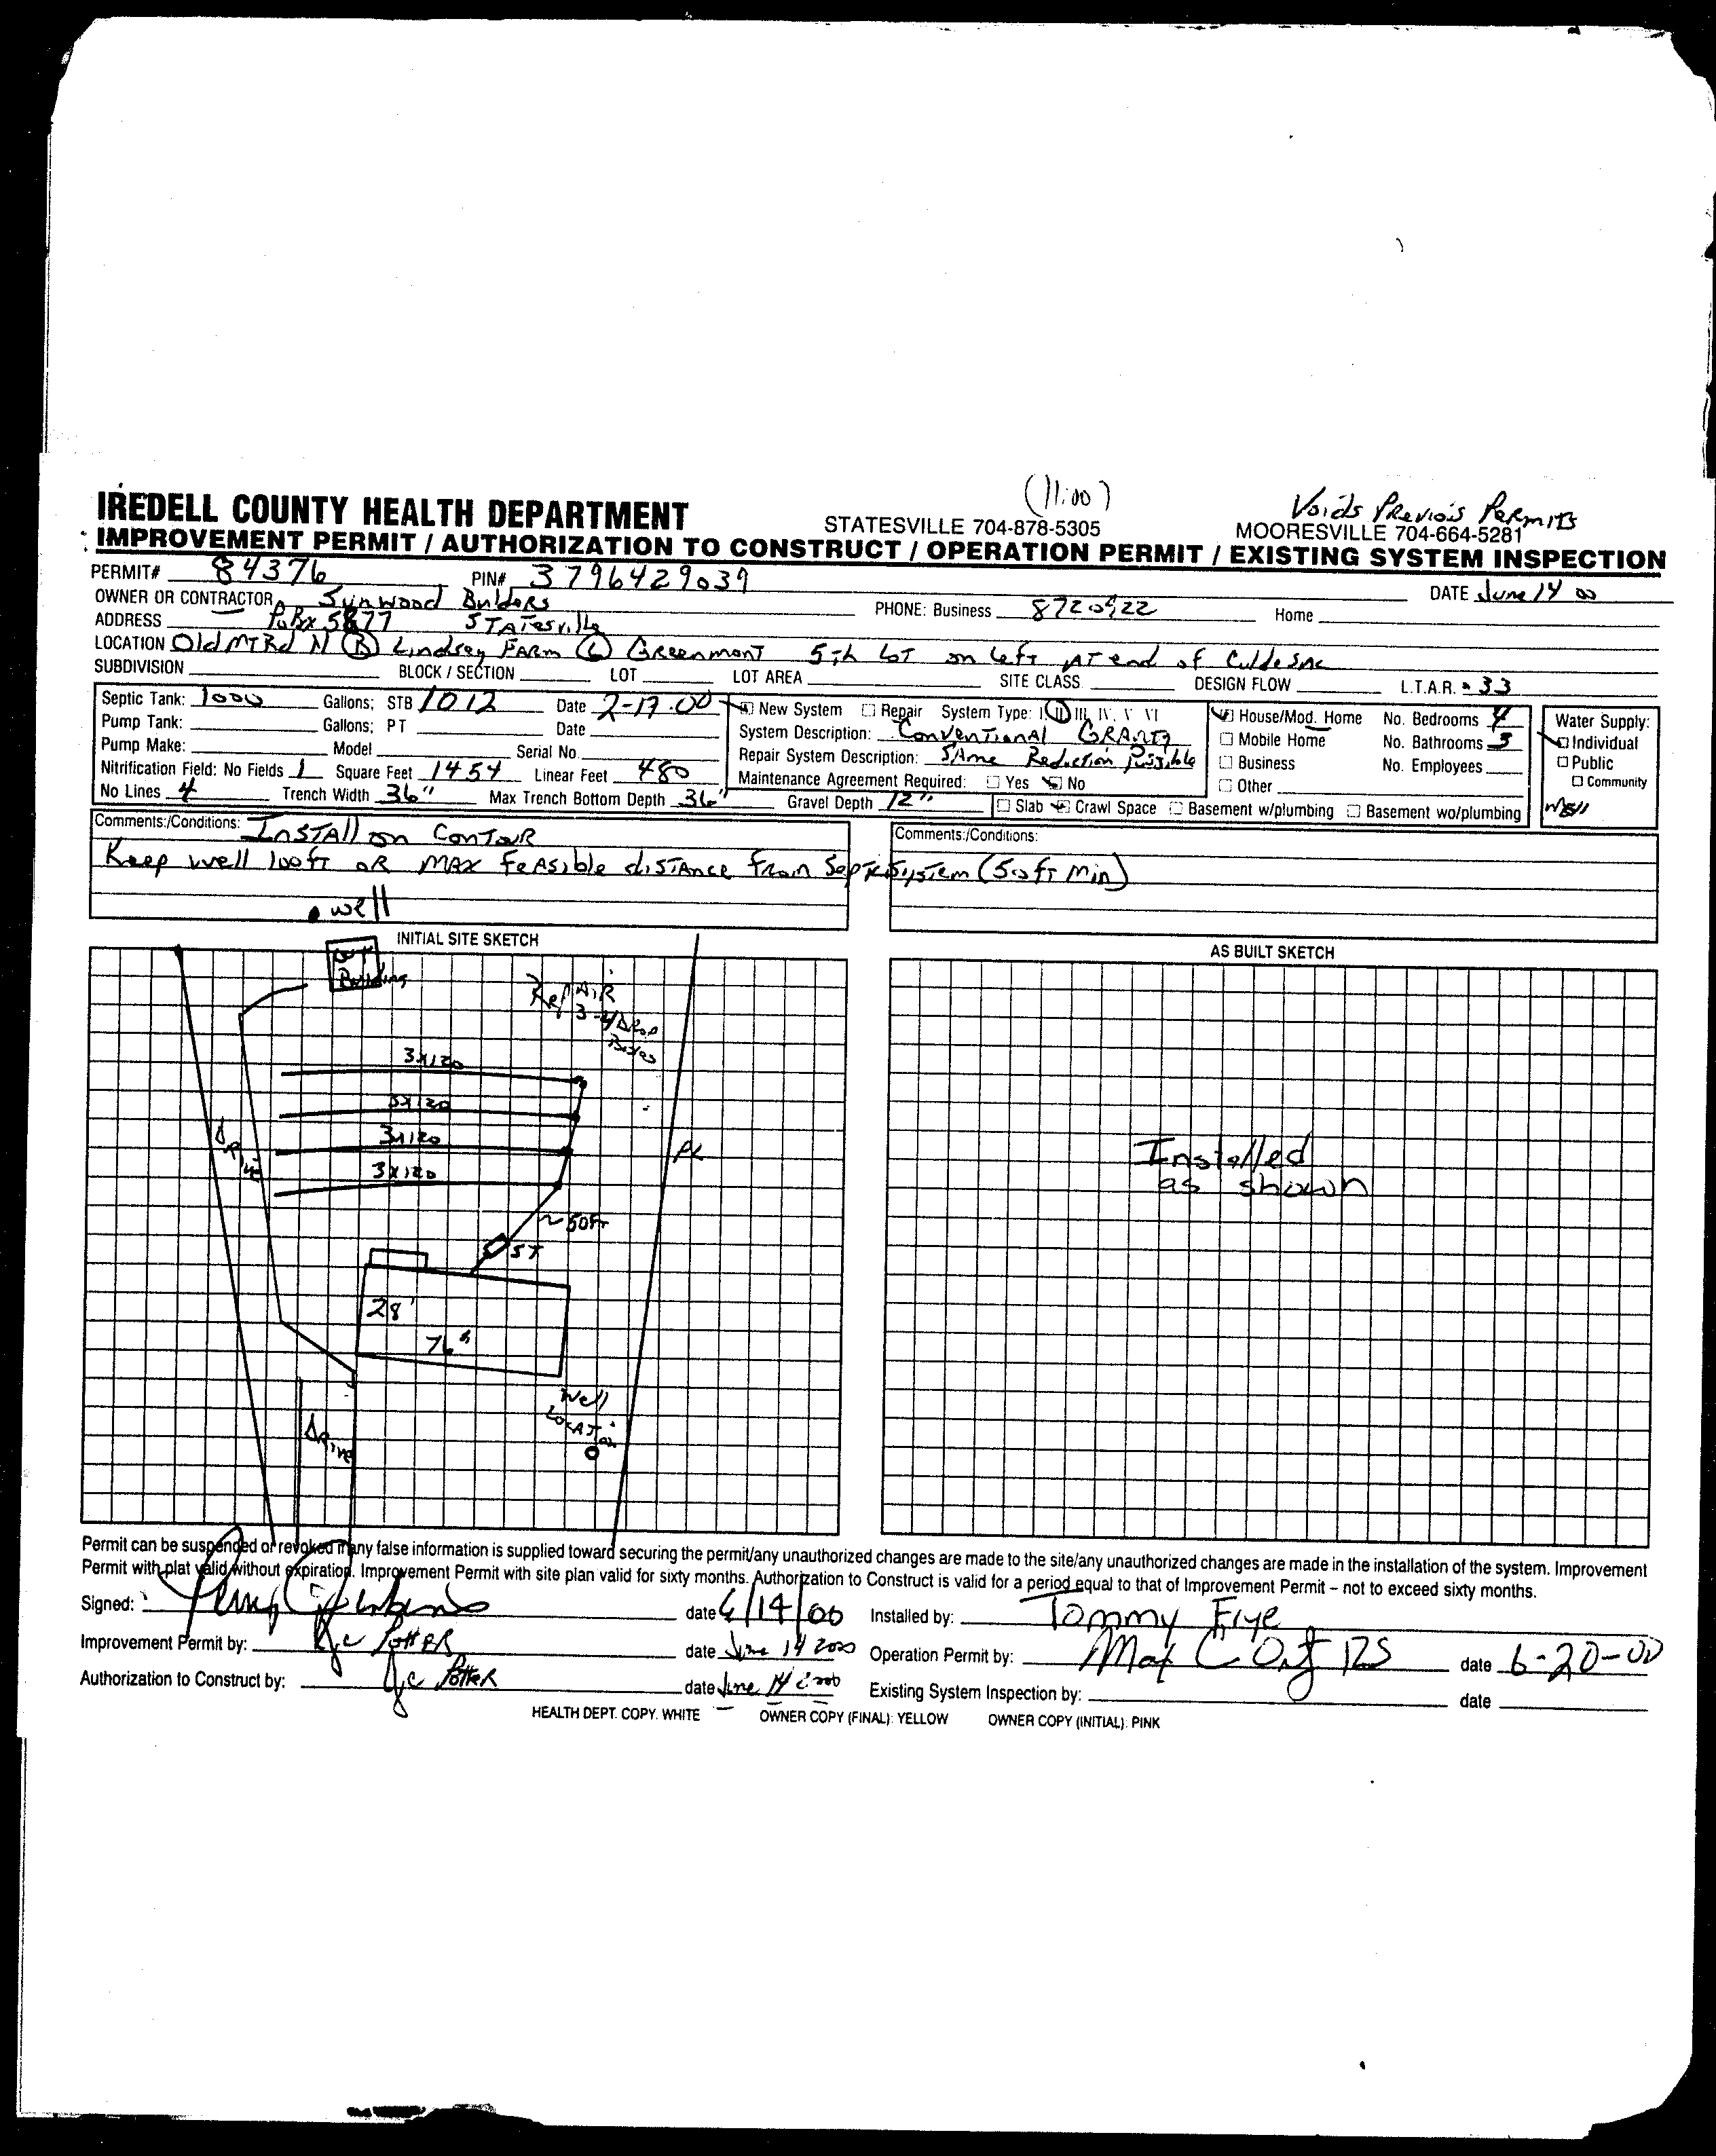 (11:00)
Voids Previous Permits
IREDELL COUNTY HEALTH DEPARTMENT
STATESVILLE 704-878-5305
MOORESVILLE 704-664-5281
IMPROVEMENT PERMIT / AUTHORIZATION TO CONSTRUCT / OPERATION PERMIT / EXISTING SYSTEM INSPECTION
PERMIT# 84376 PIN# 3796429039 DATE June 14 00
OWNER OR CONTRACTOR Sunwood Builders PHONE: Business 8720922 Home
ADDRESS PoBx 5877 STATesville
LOCATION Old MT Rd N (R) Lindsey FARM (L) Greenmont 5th LOT on Left AT end of CuldeSac
SUBDIVISION BLOCK / SECTION LOT LOT AREA SITE CLASS DESIGN FLOW L.T.A.R. .33
Septic Tank: 1000 Gallons; STB 1012 Date 2-17-00
Pump Tank: Gallons; PT Date
Pump Make: Model Serial No.
Nitrification Field: No Fields 1 Square Feet 1454 Linear Feet 480
No Lines 4 Trench Width 36" Max Trench Bottom Depth 36" Gravel Depth 12"
New System Repair System Type: I, II, III, IV, V VI
System Description: Conventional GRAVITY
Repair System Description: SAme Reduction Possible
Maintenance Agreement Required: Yes No
House/Mod. Home No. Bedrooms 4
Mobile Home No. Bathrooms 3
Business No. Employees
Other
Slab Crawl Space Basement w/plumbing Basement wo/plumbing
Water Supply:
Individual
Public
Community
Well
Comments:/Conditions: INSTAll on ConTour
Keep well 100ft OR MAX feasible disTance from SepTic SysTem (50ft Min)
Comments:/Conditions:
well
INITIAL SITE SKETCH
AS BUILT SKETCH
Building
RepAiR
3-4 DRop
Boxes
3x120
3x120
3x120
3x120
DRive
PL
~50Ft
ST
28'
76'
Well
LocATion
DRive
Installed
as shown
Permit can be suspended or revoked if any false information is supplied toward securing the permit/any unauthorized changes are made to the site/any unauthorized changes are made in the installation of the system. Improvement
Permit with plat valid without expiration. Improvement Permit with site plan valid for sixty months. Authorization to Construct is valid for a period equal to that of Improvement Permit – not to exceed sixty months.
Signed: date 6/14/00 Installed by: Tommy Frye
Improvement Permit by: Potter date June 14 2000 Operation Permit by: RS date 6-20-00
Authorization to Construct by: Potter date June 14 2000 Existing System Inspection by: date
HEALTH DEPT. COPY. WHITE OWNER COPY (FINAL): YELLOW OWNER COPY (INITIAL): PINK